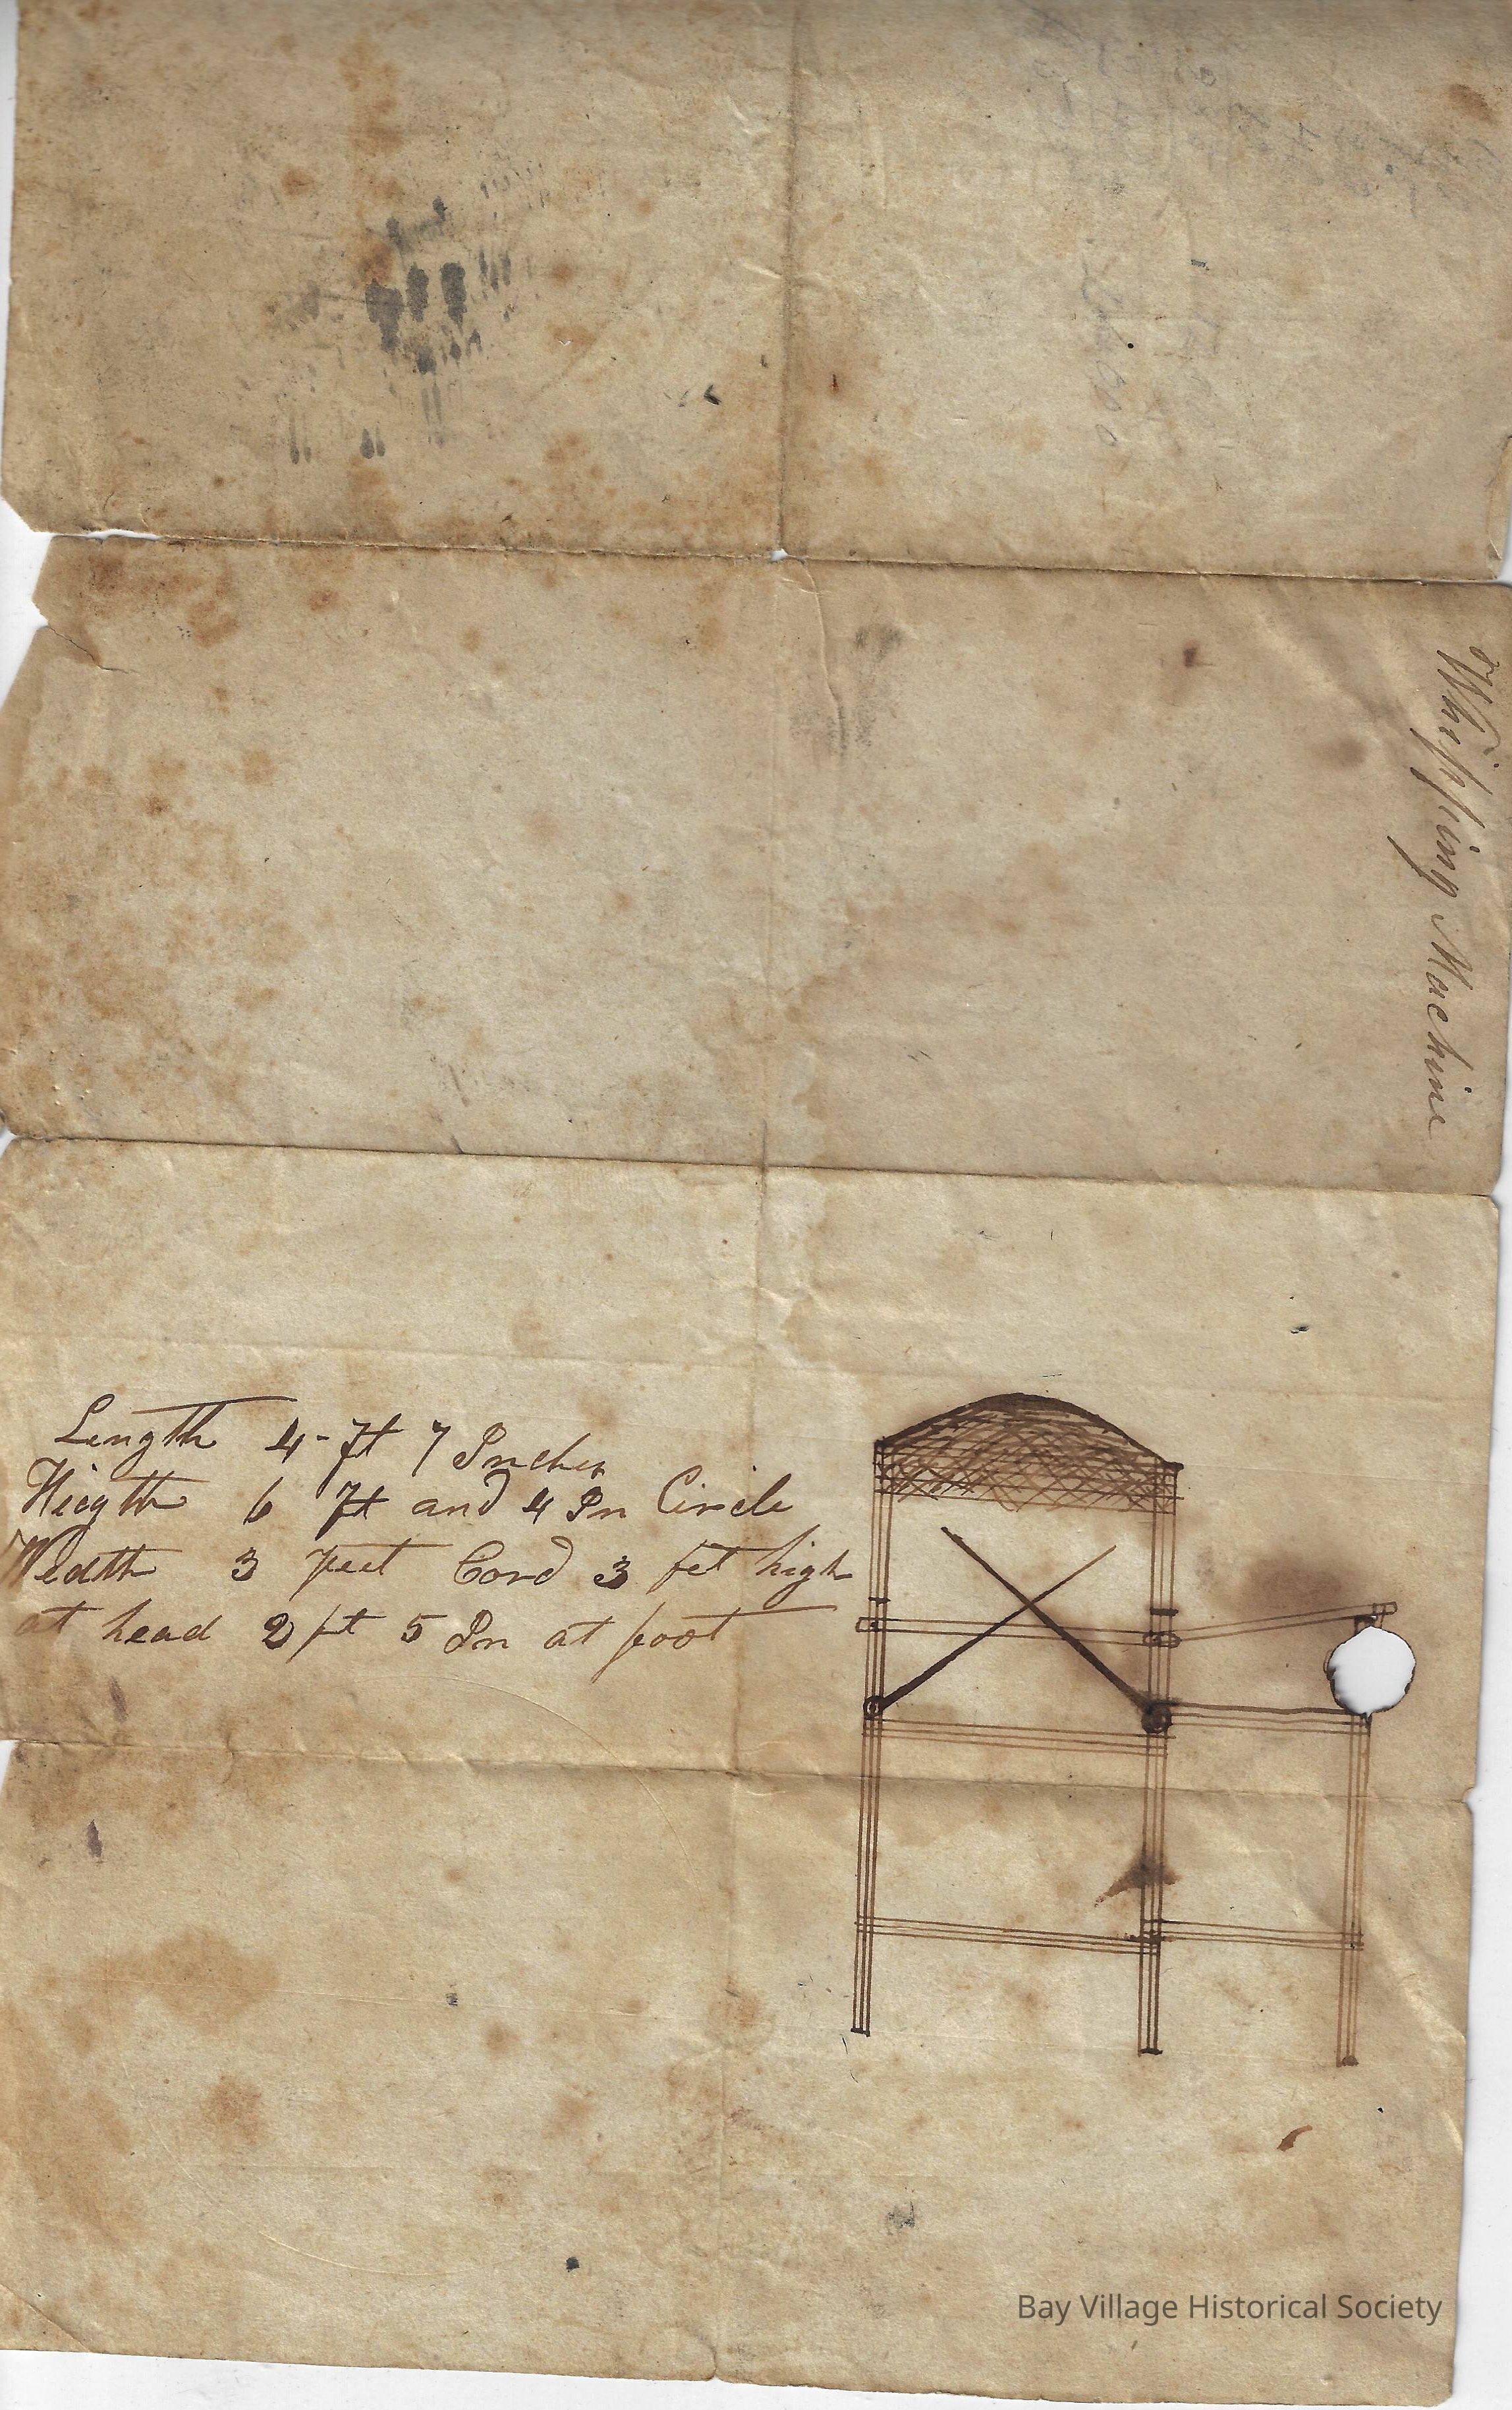 Whipping Machine
Length 4-ft 7 Inches
Hiegth 6 ft and 4 In Circle
Width 3 feet Cord 3 fet high
at head 2 ft 5 In at foot
Bay Village Historical Society